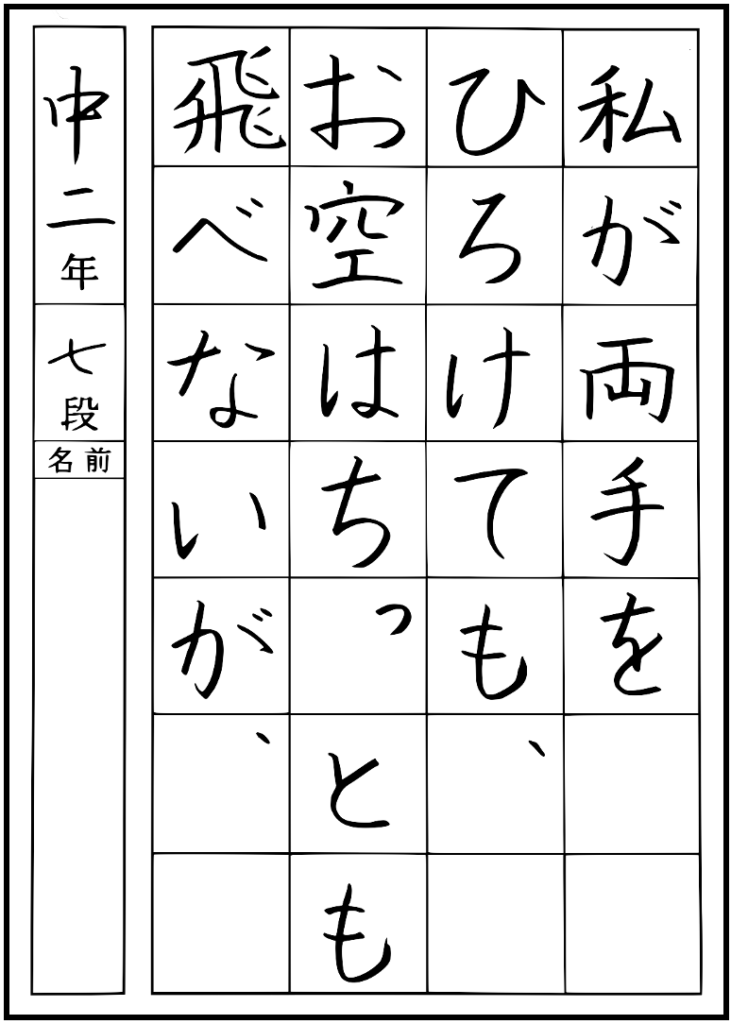 私が両手を
ひろけても、
お空はちっとも
飛べないが、
中二年
七段
名前